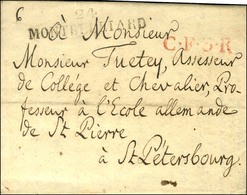 6
à Monsieur
MONTBELIARD
C.F.3.R
Monsieur Tuetey, Assesseur
de Collége et Chevalier, Pro-
fesseur à l'Ecole allemande
de St Pierre
à St. Pétersbourg.